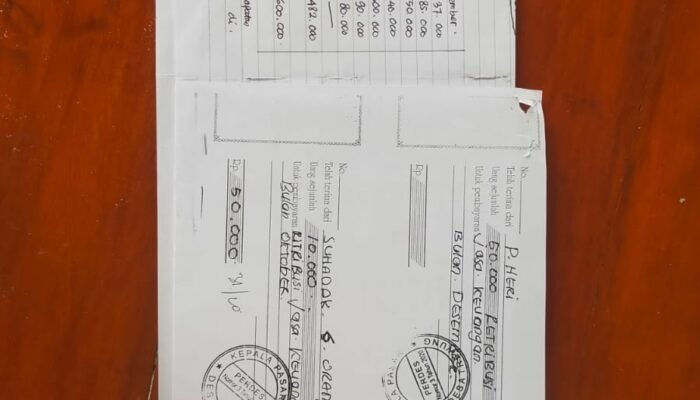 ember.
37.000
85.000
50.000
40.000
600.000
90.000
80.000
482.000
600.000.
di.
No.
Telah terima dari P. HERI
Uang sejumlah 50.000 RETRIBUSI
Untuk pembayaran Jasa. Keuangan
Bulan. DESEM
Rp
PERDES
No.
Telah terima dari SUHADAK. 5. ORAN
Uang sejumlah 10.000.
Untuk pembayaran RITRIBUSI Jasa. KEUAN
Bulan OKTOBER.
Rp 50.000
KEPALA PASAR
DES
PERDES